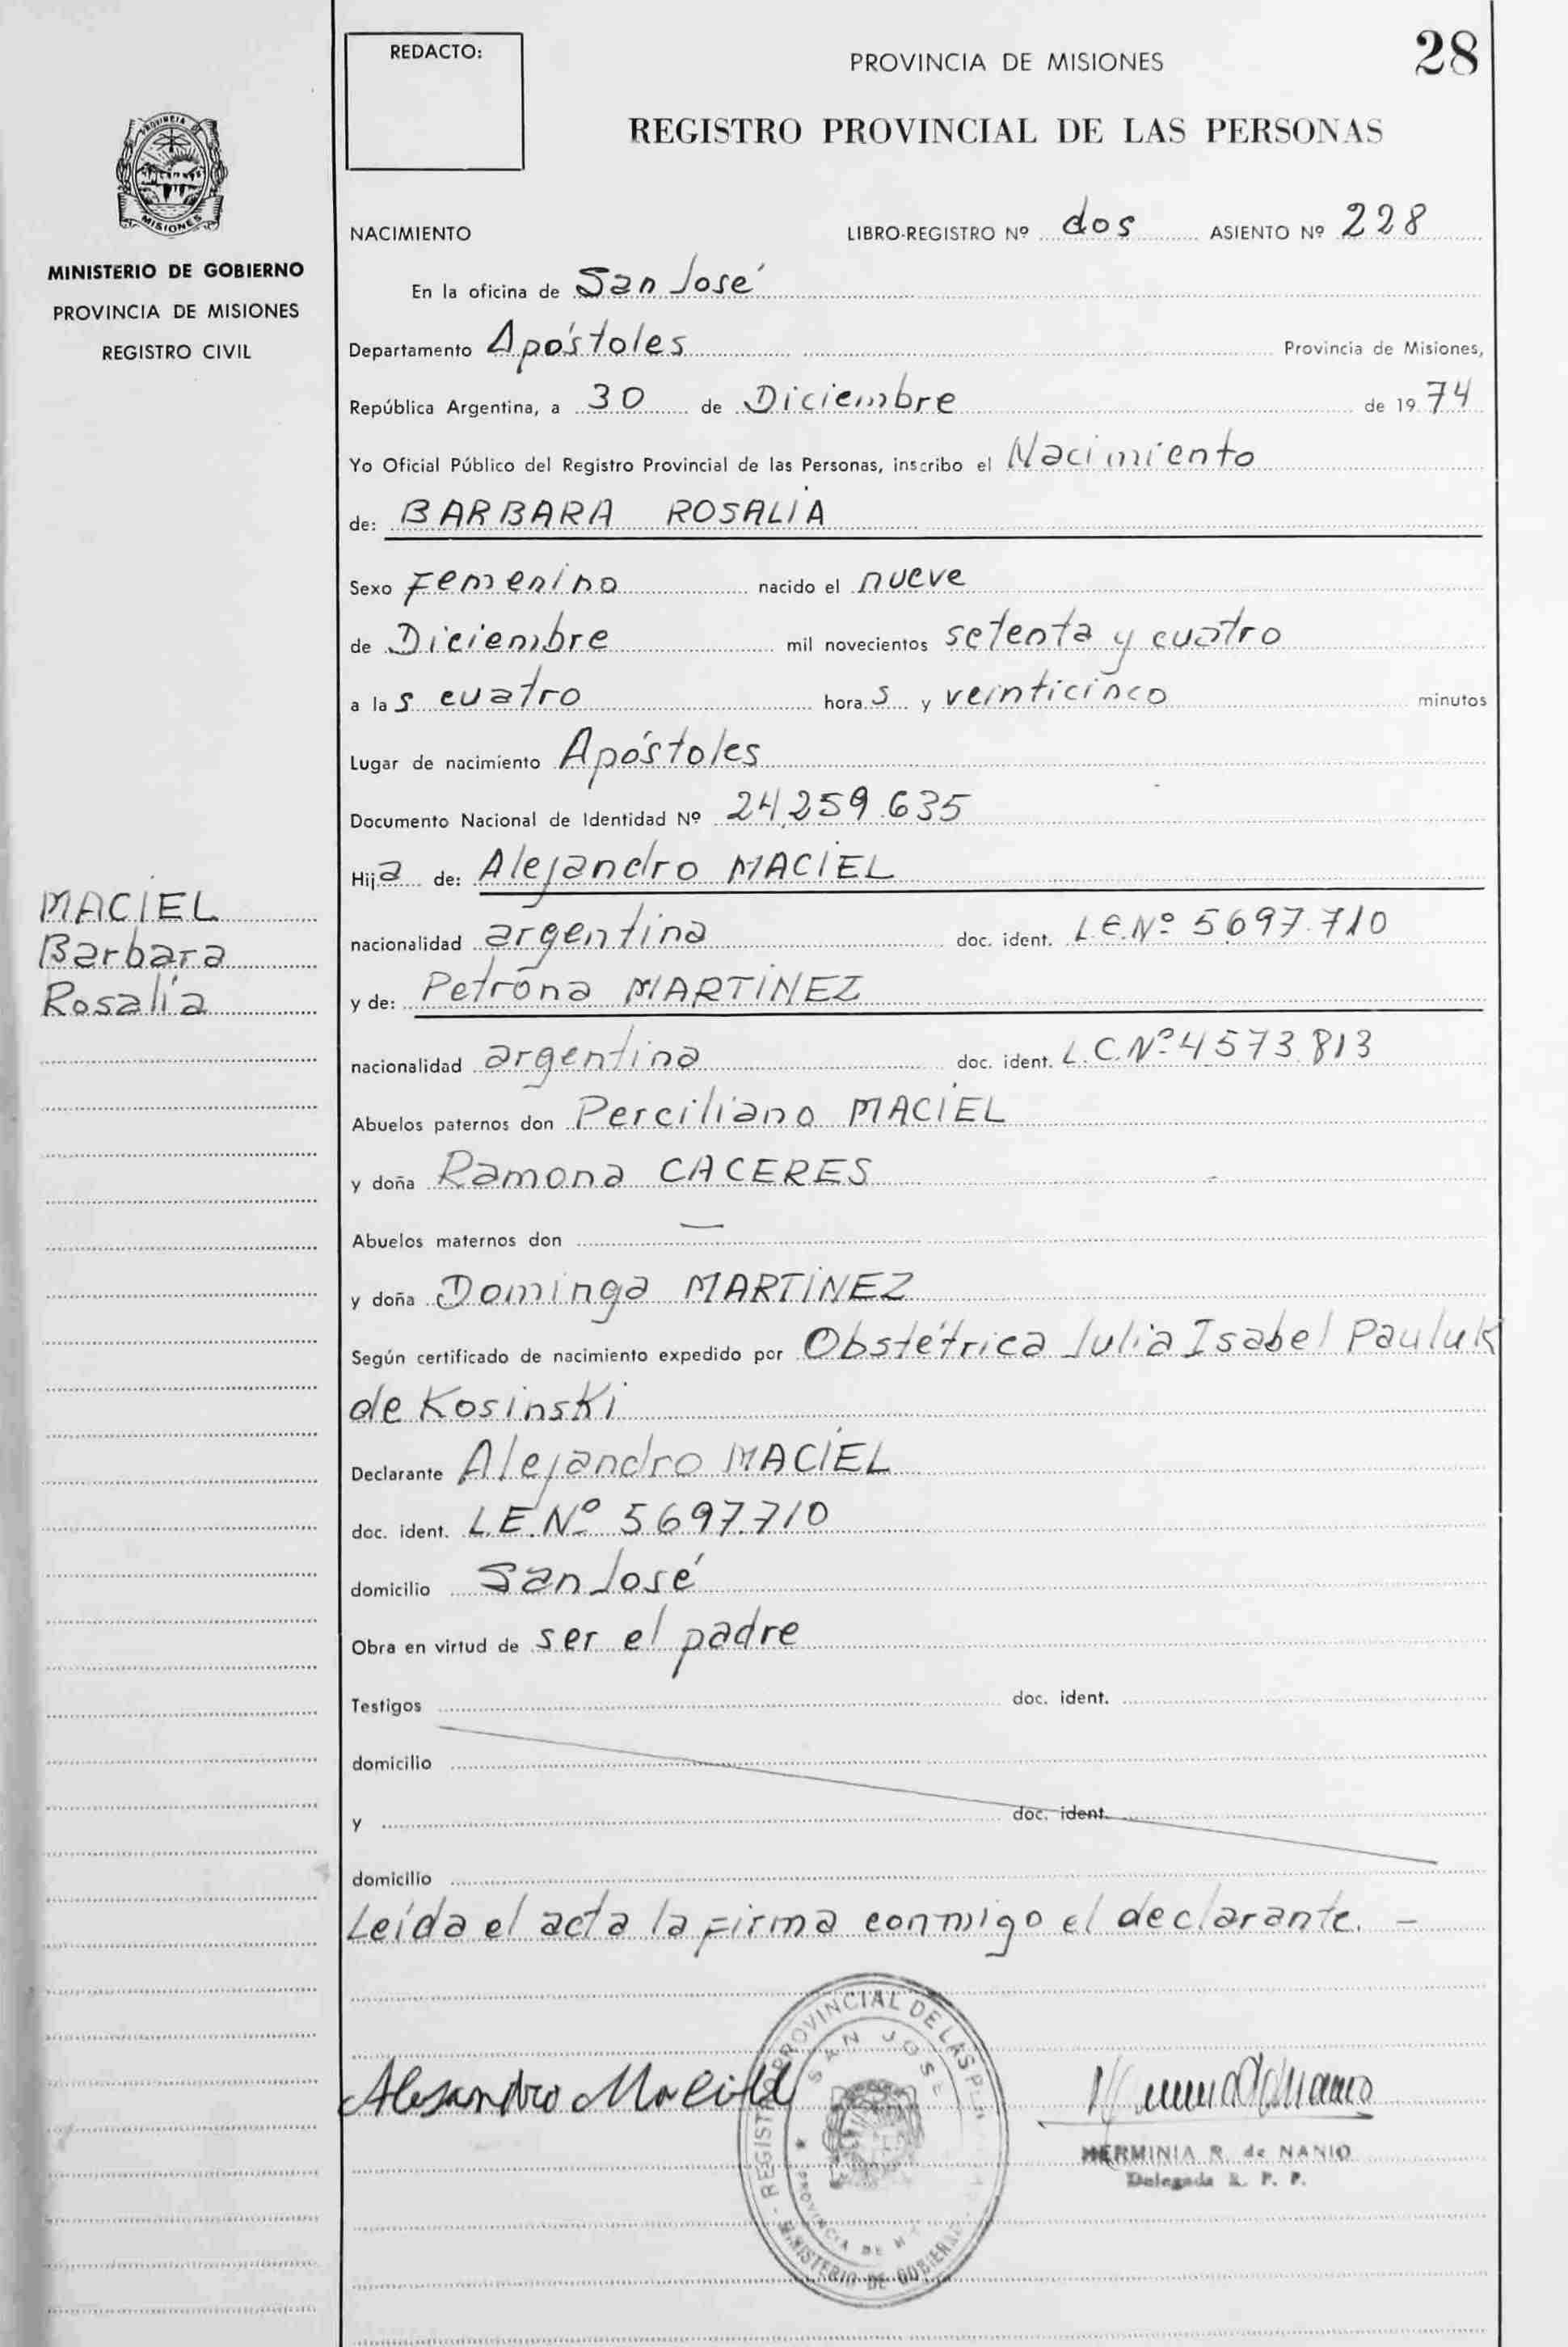 REDACTO:
PROVINCIA DE MISIONES
28
REGISTRO PROVINCIAL DE LAS PERSONAS
PROVINCIA
MISIONES
MINISTERIO DE GOBIERNO
PROVINCIA DE MISIONES
REGISTRO CIVIL
NACIMIENTO LIBRO-REGISTRO Nº dos ASIENTO Nº 228
En la oficina de San José
Departamento Apóstoles Provincia de Misiones,
República Argentina, a 30 de Diciembre de 1974
Yo Oficial Público del Registro Provincial de las Personas, inscribo el Nacimiento
de: BARBARA ROSALIA
Sexo Femenino nacido el nueve
de Diciembre mil novecientos setenta y cuatro
a las cuatro horas y veinticinco minutos
Lugar de nacimiento Apóstoles
Documento Nacional de Identidad Nº 24.259.635
Hija de: Alejandro MACIEL
MACIEL
Barbara
Rosalía
nacionalidad argentina doc. ident. L.E.Nº 5.697.710
y de: Petrona MARTINEZ
nacionalidad argentina doc. ident. L.C.Nº 4.573.813
Abuelos paternos don Perciliano MACIEL
y doña Ramona CACERES
Abuelos maternos don —
y doña Dominga MARTINEZ
Según certificado de nacimiento expedido por Obstétrica Julia Isabel Pauluk
de Kosinski
Declarante Alejandro MACIEL
doc. ident. L.E.Nº 5.697.710
domicilio San José
Obra en virtud de ser el padre
Testigos doc. ident.
domicilio
y doc. ident.
domicilio
Leída el acta la firma conmigo el declarante. —
REGISTRO PROVINCIAL DE LAS
SAN JOSE
PROVINCIA DE
MINISTERIO DE GOBIERNO
Alesandro
HERMINIA R. de NANIO
Delegada R. P. P.